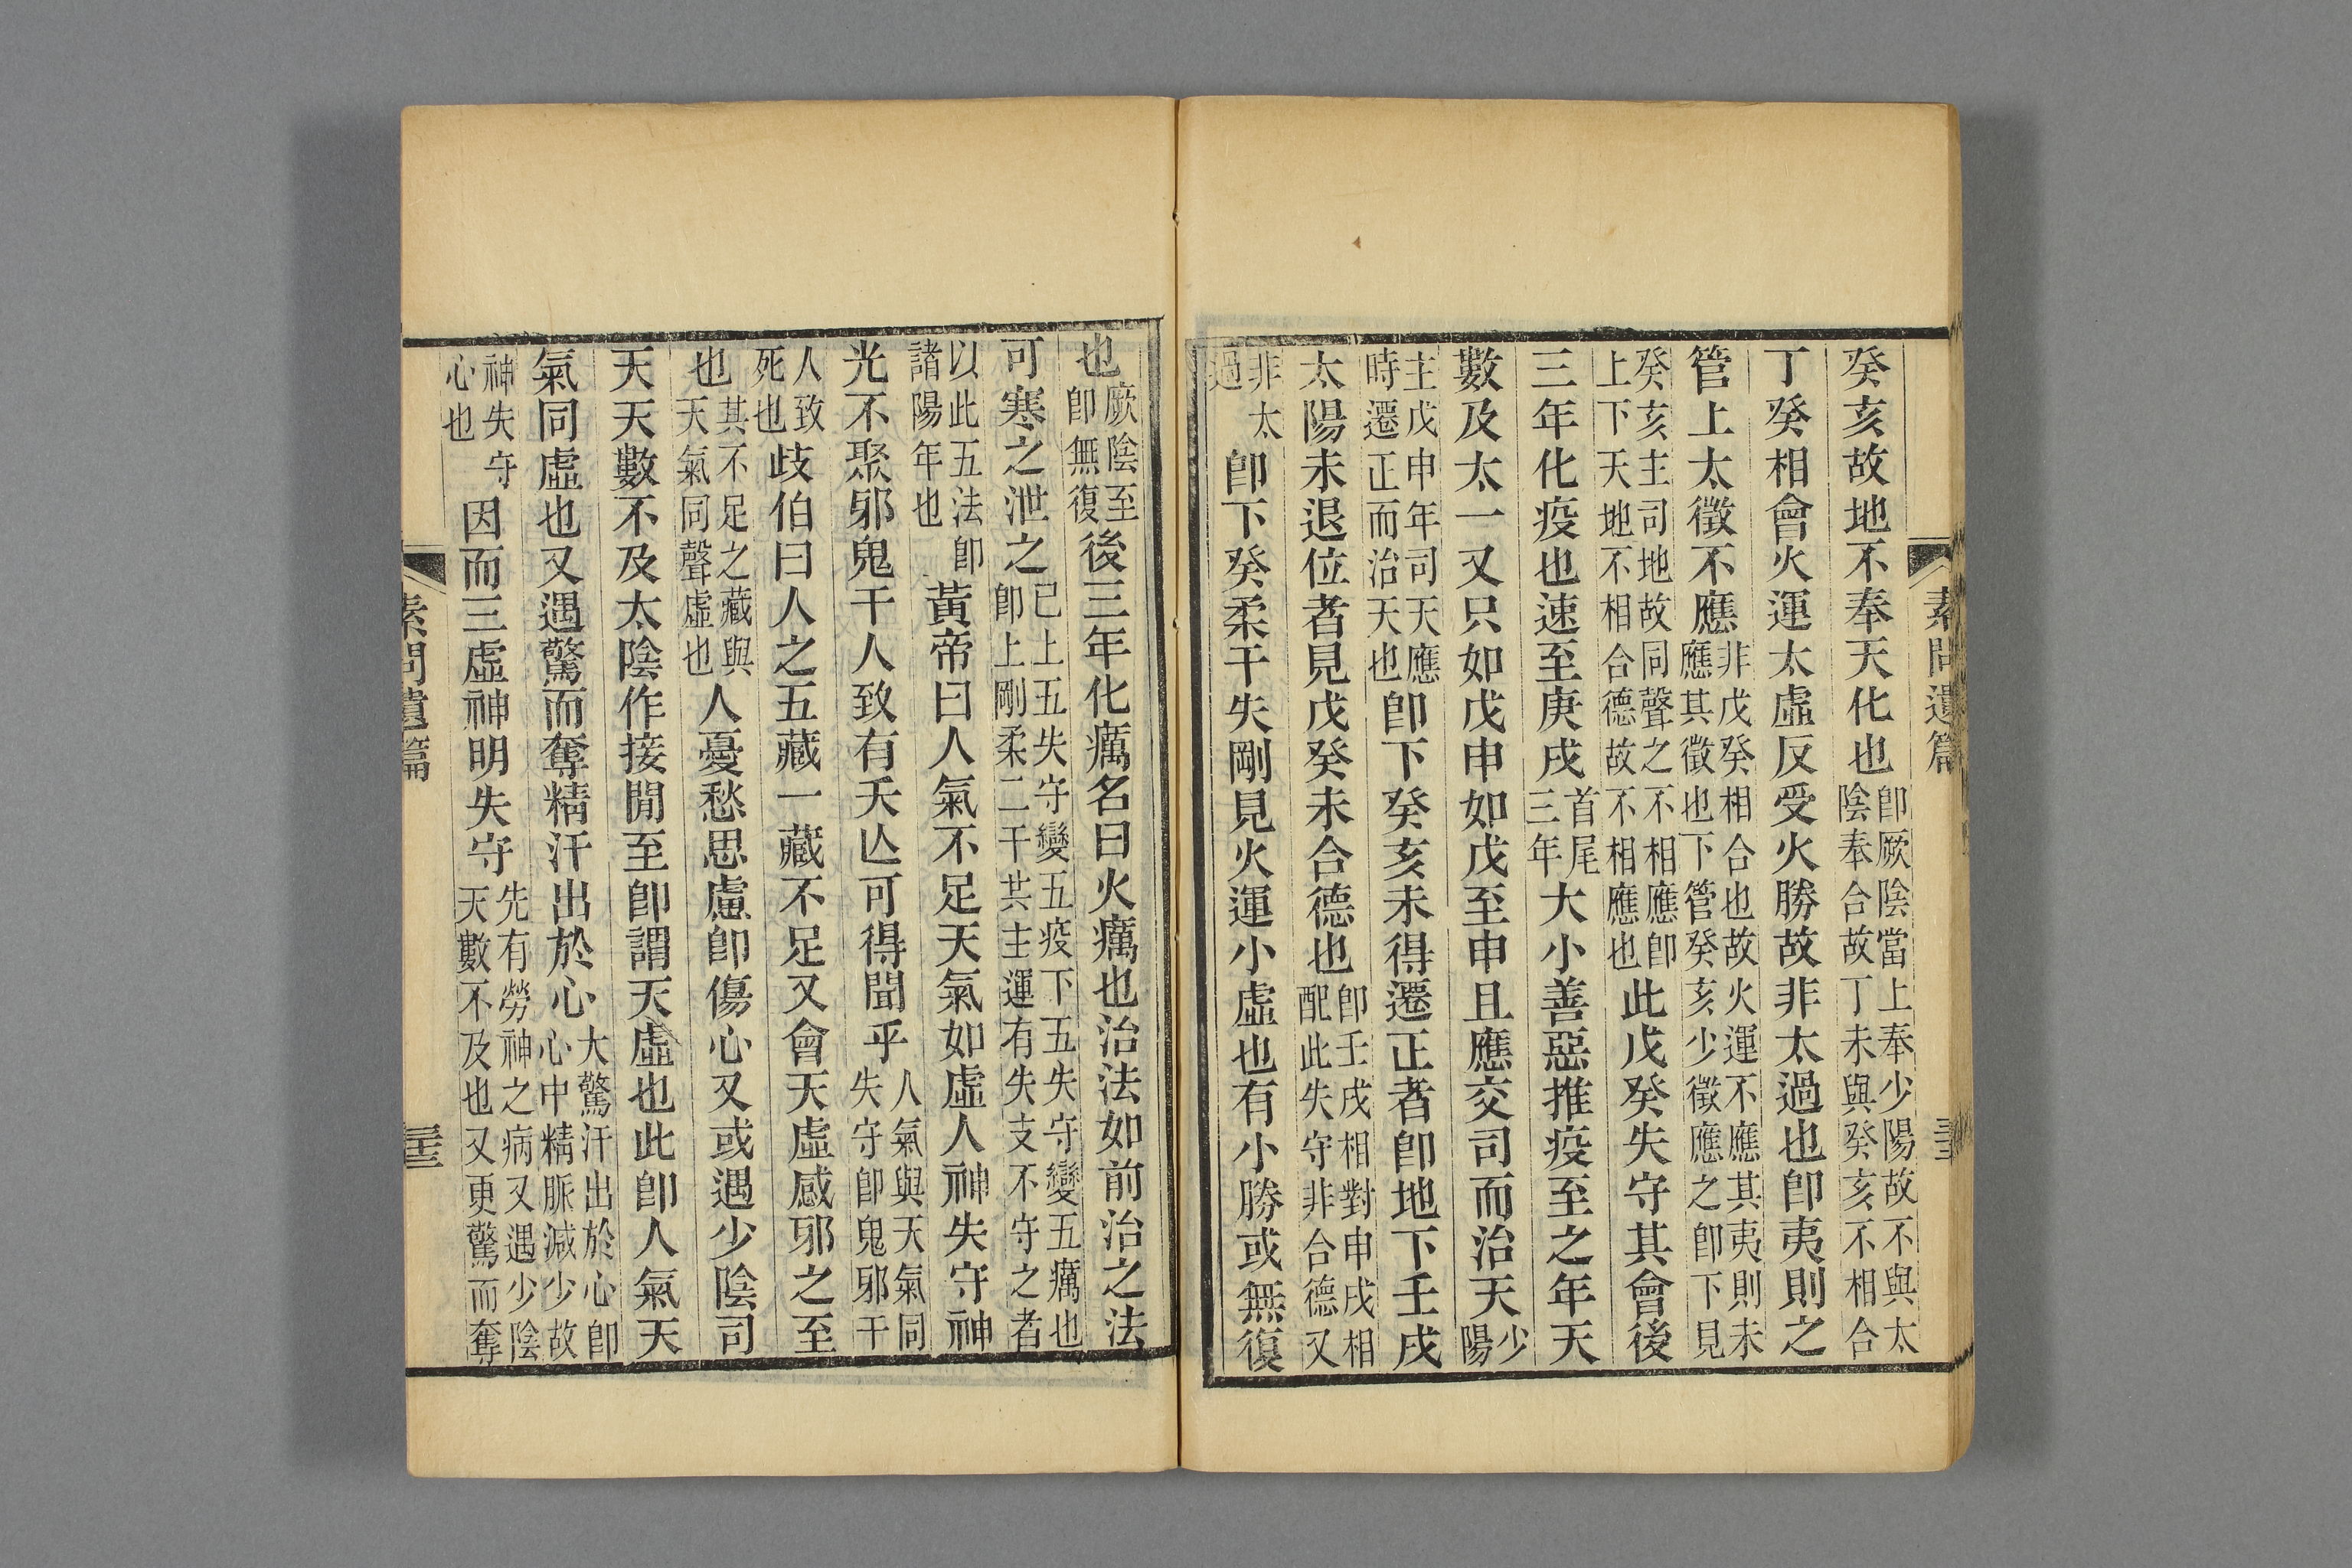 癸亥故地不奉天化也卽厥陰當上奉少陽故不與太陰奉合故丁未與癸亥不相合
丁癸相會火運太虛反受火勝故非太過也卽夷則之
管上太徵不應非戊癸相合也故火運不應其夷則未應其徵也下管癸亥少徵應之卽下見
癸亥主司地故同聲之不相應卽上下天地不相合德故不相應也此戊癸失守其會後
三年化疫也速至庚戌首尾三年大小善惡推疫至之年天
數及太一又只如戊申如戊至申且應交司而治天少陽
主戊申年司天應時遷正而治天也卽下癸亥未得遷正者卽地下壬戌
太陽未退位者見戊癸未合德也卽壬戌相對申戌相配此失守非合德又
非太過卽下癸柔干失剛見火運小虛也有小勝或無復
素問遺篇
也厥陰至卽無復後三年化癘名曰火癘也治法如前治之法
可寒之泄之已上五失守變五疫下五失守變五癘也卽上剛柔二干共主運有失支不守之者
以此五法卽諸陽年也黃帝曰人氣不足天氣如虛人神失守神
光不聚邪鬼干人致有夭亾可得聞乎人氣與天氣同失守卽鬼邪干
人致死也歧伯曰人之五藏一藏不足又會天虛感邪之至
也其不足之藏與天氣同聲虛也人憂愁思慮卽傷心又或遇少陰司
天天數不及太陰作接閒至卽謂天虛也此卽人氣天
氣同虛也又遇驚而奪精汗出於心大驚汗出於心卽心中精脈減少故
神失守心也因而三虛神明失守先有勞神之病又遇少陰天數不及也又更驚而奪
素問遺篇